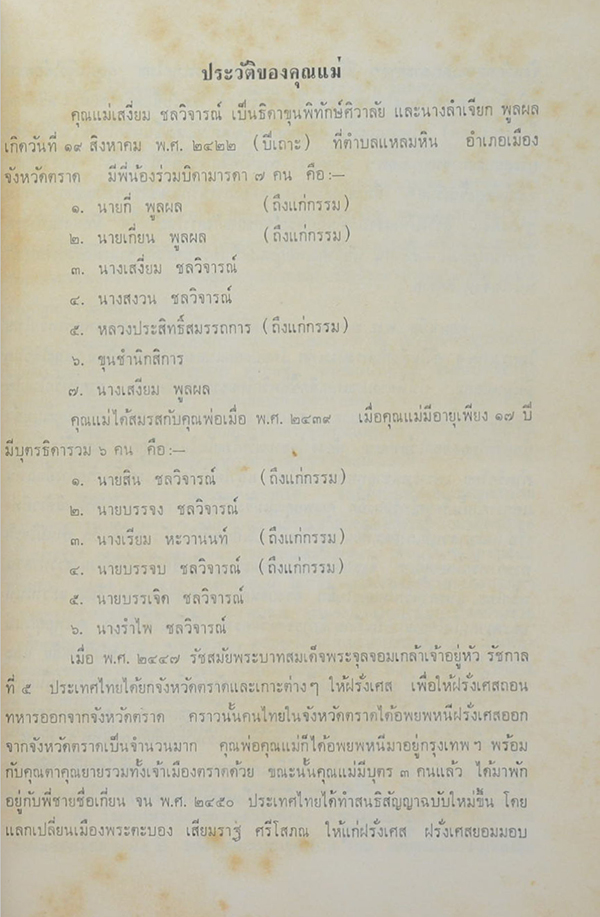 ประวัติของคุณแม่
คุณแม่เสงี่ยม ชลวิจารณ์ เป็นธิดาขุนพิทักษ์ศิวาลัย และนางลำเจียก พูลผล
เกิดวันที่ ๑๙ สิงหาคม พ.ศ. ๒๔๒๒ (ปีเถาะ) ที่ตำบลแหลมหิน อำเภอเมือง
จังหวัดตราด มีพี่น้องร่วมบิดามารดา ๗ คน คือ :—
๑. นายกี่ พูลผล (ถึงแก่กรรม)
๒. นายเกี่ยน พูลผล (ถึงแก่กรรม)
๓. นางเสงี่ยม ชลวิจารณ์
๔. นางสงวน ชลวิจารณ์
๕. หลวงประสิทธิ์สมรรถการ (ถึงแก่กรรม)
๖. ขุนชำนิกสิการ
๗. นางเสงียม พูลผล
คุณแม่ได้สมรสกับคุณพ่อเมื่อ พ.ศ. ๒๔๓๙ เมื่อคุณแม่มีอายุเพียง ๑๗ ปี
มีบุตรธิดารวม ๖ คน คือ :—
๑. นายสิน ชลวิจารณ์ (ถึงแก่กรรม)
๒. นายบรรจง ชลวิจารณ์
๓. นางเรียม หะวานนท์ (ถึงแก่กรรม)
๔. นายบรรจบ ชลวิจารณ์ (ถึงแก่กรรม)
๕. นายบรรเจิด ชลวิจารณ์
๖. นางรำไพ ชลวิจารณ์
เมื่อ พ.ศ. ๒๔๔๗ รัชสมัยพระบาทสมเด็จพระจุลจอมเกล้าเจ้าอยู่หัว รัชกาล
ที่ ๕ ประเทศไทยได้ยกจังหวัดตราดและเกาะต่างๆ ให้ฝรั่งเศส เพื่อให้ฝรั่งเศสถอน
ทหารออกจากจังหวัดตราด คราวนั้นคนไทยในจังหวัดตราดได้อพยพหนีฝรั่งเศสออก
จากจังหวัดตราดเป็นจำนวนมาก คุณพ่อคุณแม่ก็ได้อพยพหนีมาอยู่กรุงเทพ ฯ พร้อม
กับคุณตาคุณยายรวมทั้งเจ้าเมืองตราดด้วย ขณะนั้นคุณแม่มีบุตร ๓ คนแล้ว ได้มาพัก
อยู่กับพี่ชายชื่อเกี่ยน จน พ.ศ. ๒๔๕๐ ประเทศไทยได้ทำสนธิสัญญาฉบับใหม่ขึ้น โดย
แลกเปลี่ยนเมืองพระตะบอง เสียมราฐ ศรีโสภณ ให้แก่ฝรั่งเศส ฝรั่งเศสยอมมอบ